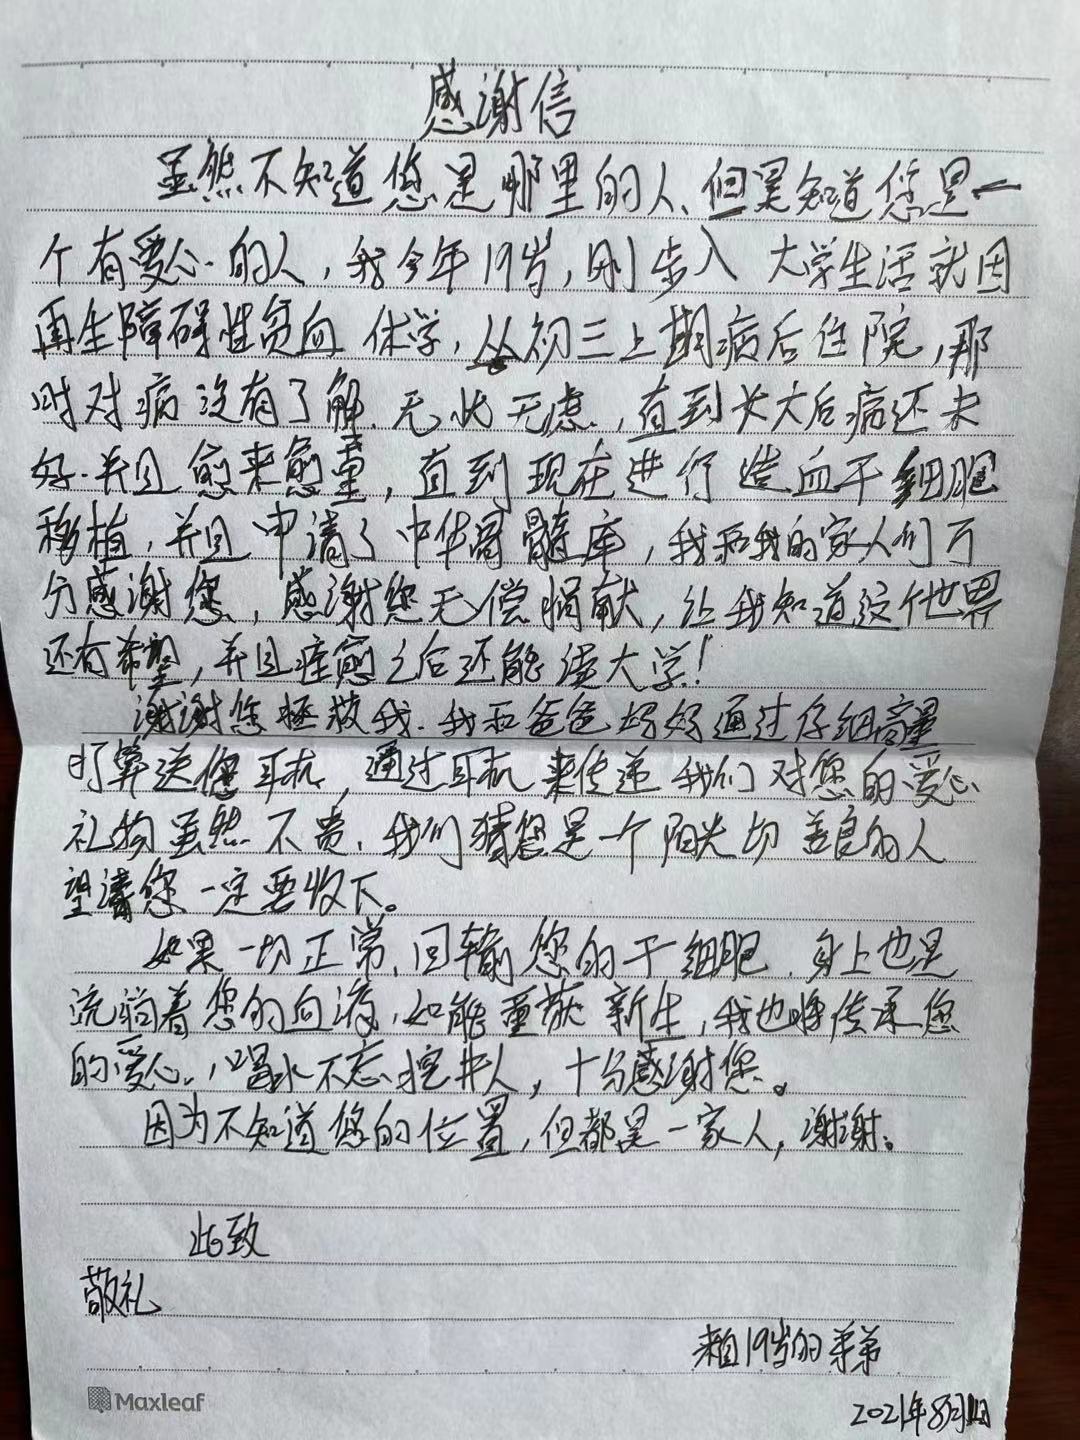 感谢信
虽然不知道您是哪里的人、但是知道您是一
个有爱心的人，我今年19岁，刚步入 大学生活就因
再生障碍性贫血 休学，从初三上期病后住院，那
时对病没有了解、无忧无虑，直到长大后病还未
好.并且愈来愈重，直到现在进行造血干细胞
移植，并且申请了中华骨髓库，我和我的家人们万
分感谢您，感谢您无偿捐献，让我知道这个世界
还有希望，并且痊愈之后还能读大学！
谢谢您拯救我.我和爸爸妈妈通过仔细商量
打算送您耳机，通过耳机来传递我们对您的爱心
礼物虽然不贵，我们猜您是一个阳光切善良的人
望请您一定要收下。
如果一切正常、回输您的干细胞、身上也是
流淌着您的血液，如能重获新生，我也将传承您
的爱心、喝水不忘挖井人，十分感谢您。
因为不知道您的位置，但都是一家人，谢谢。
此致
敬礼
来自19岁的弟弟
2021年8月 日
Maxleaf